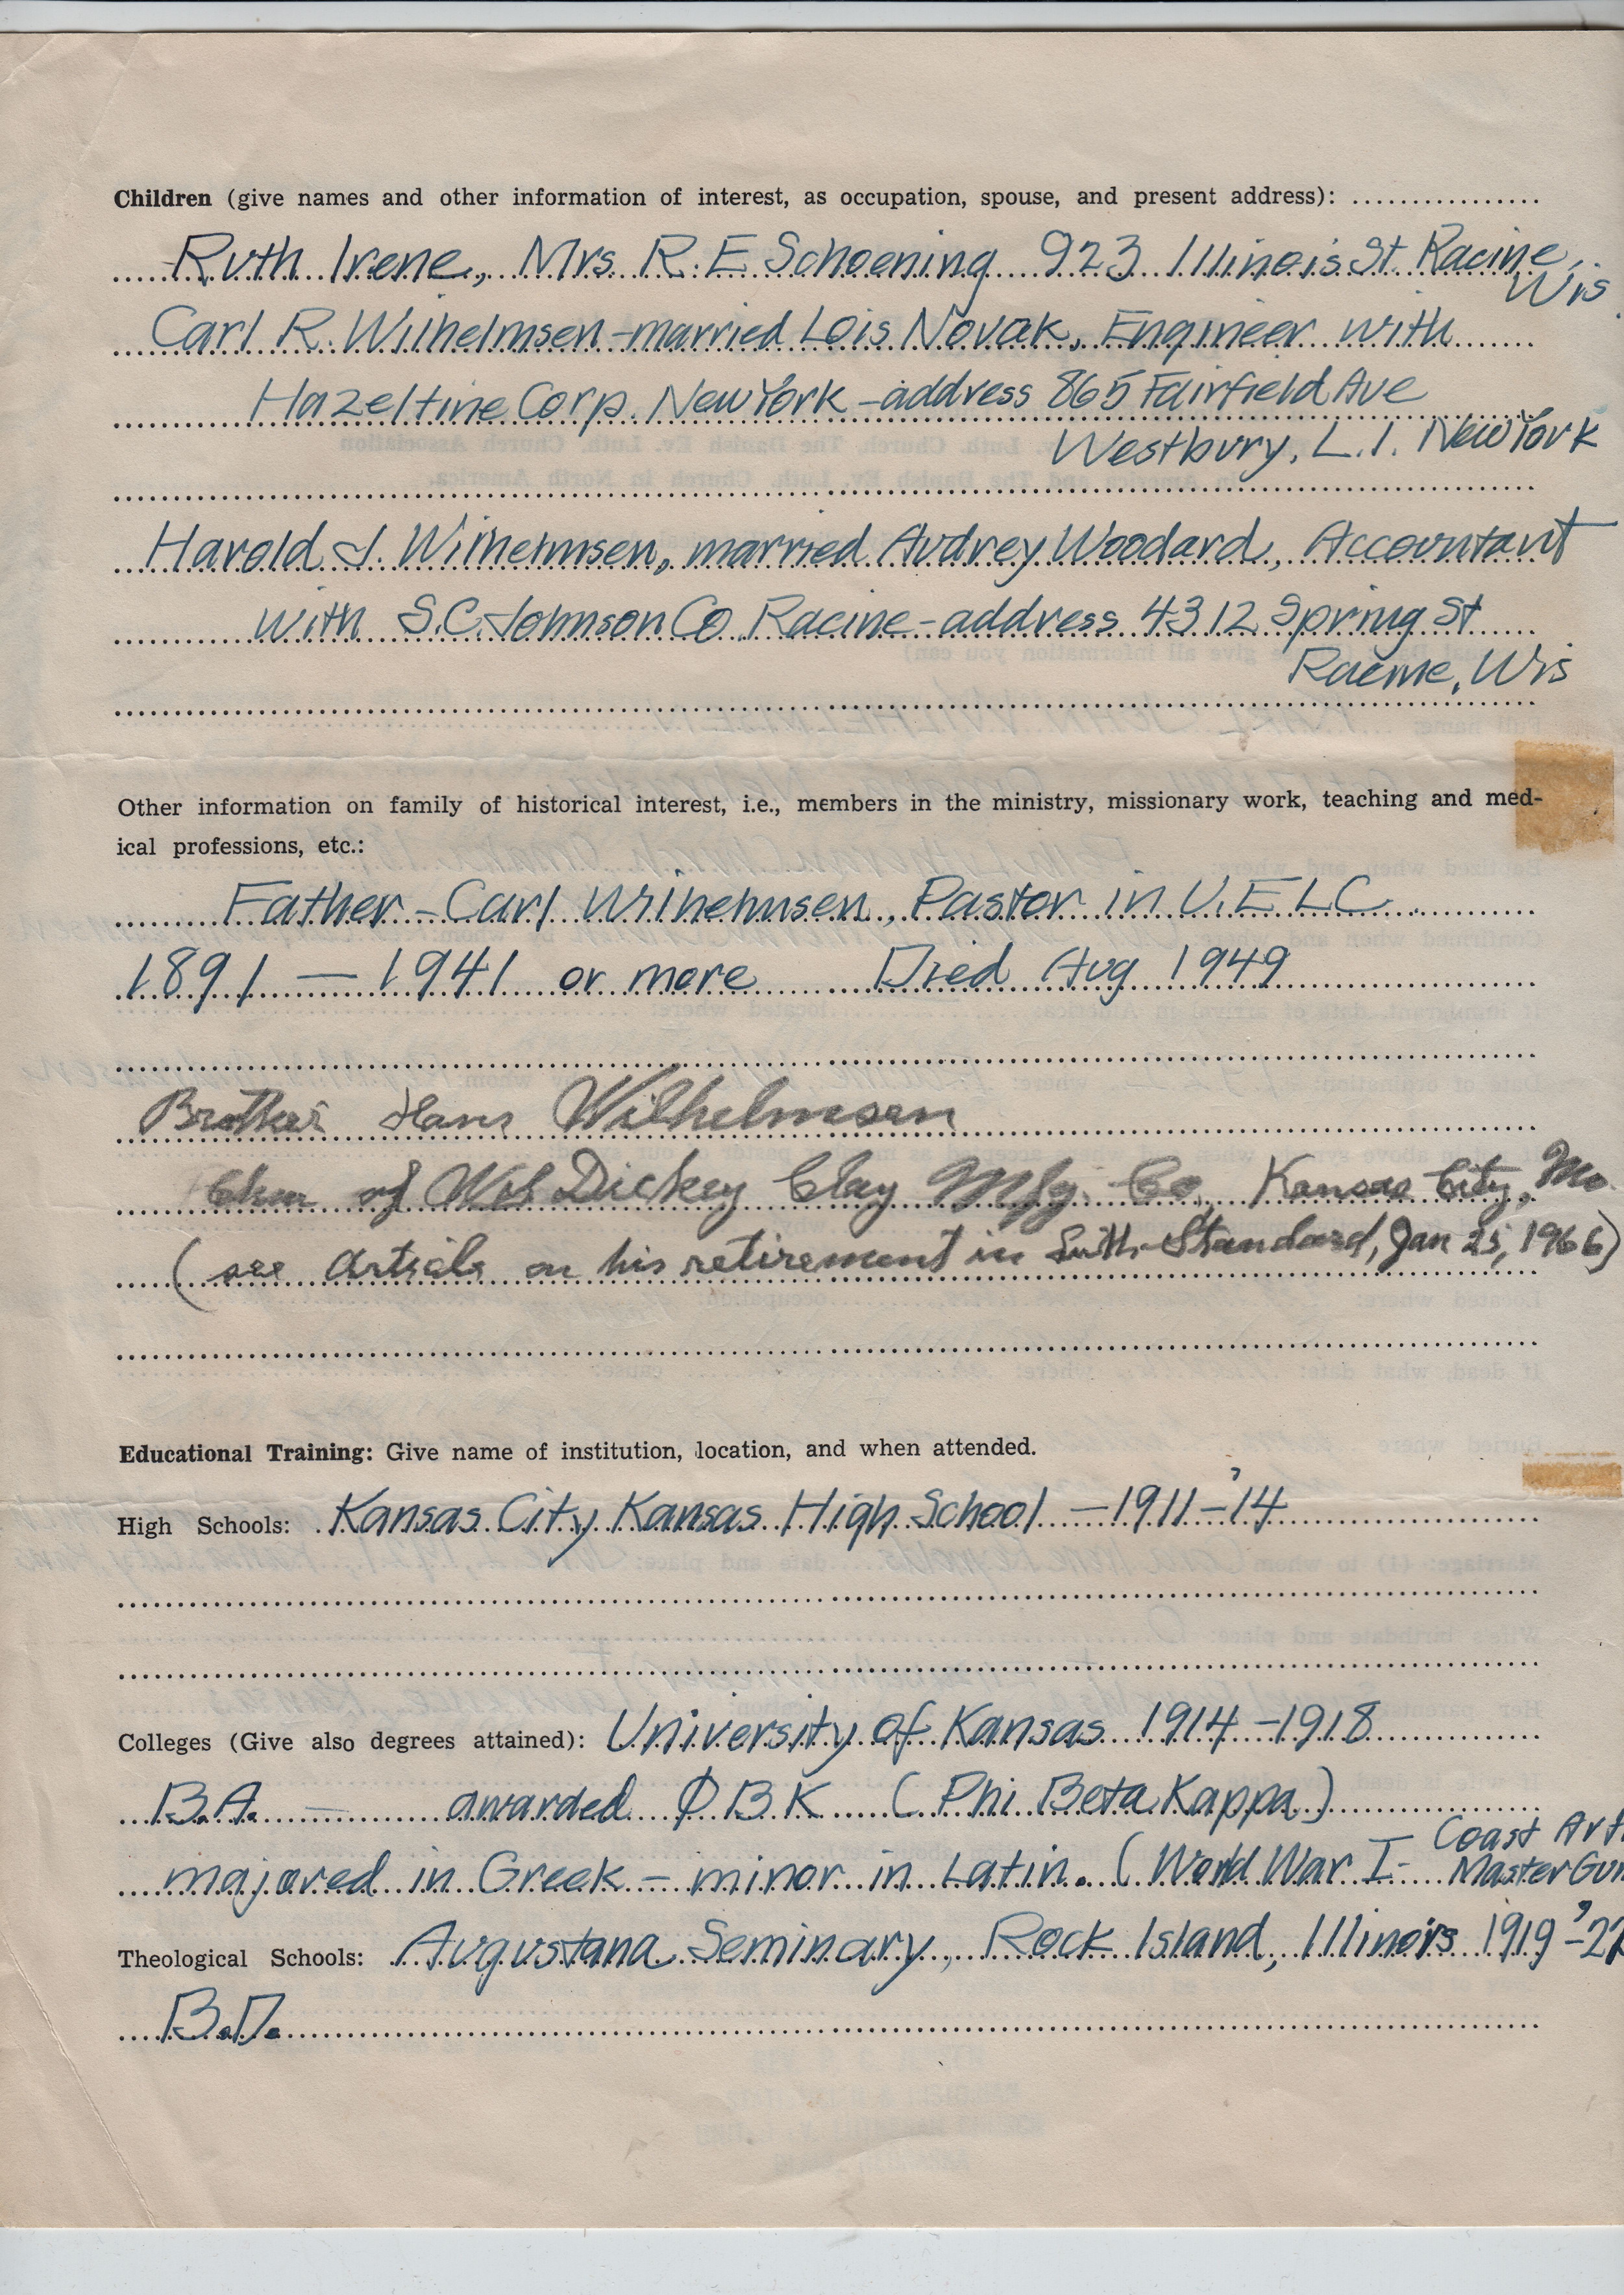 Children (give names and other information of interest, as occupation, spouse, and present address): ................
Ruth Irene, Mrs R. E Schoening 923 Illinois St. Racine,
Wis.
Carl R. Wilhelmsen - married Lois Novak, Engineer with
Hazeltine Corp. New York - address 865 Fairfield Ave
Westbury, L.I. New York
Harold J. Wilhelmsen, married Audrey Woodard, Accountant
with S.C. Johnson Co Racine - address 4312 Spring St
Racine, Wis
Other information on family of historical interest, i.e., members in the ministry, missionary work, teaching and med-
ical professions, etc.:
Father - Carl Wilhelmsen, Pastor in U.E L C
1891 — 1941 or more Died Aug 1949
Brother Hans Wilhelmsen
Chm of W S Dickey Clay Mfg. Co, Kansas City, Mo.
(see article on his retirement in Luth. Standard, Jan 25, 1966)
Educational Training: Give name of institution, location, and when attended.
High Schools: Kansas City Kansas High School - 1911-'14
Colleges (Give also degrees attained): University of Kansas 1914-1918
B.A. — awarded Φ B K (Phi Beta Kappa)
majored in Greek - minor in Latin. (World War I - Coast Art
Master Gun
Theological Schools: Augustana Seminary, Rock Island, Illinois 1919-'22
B.D.